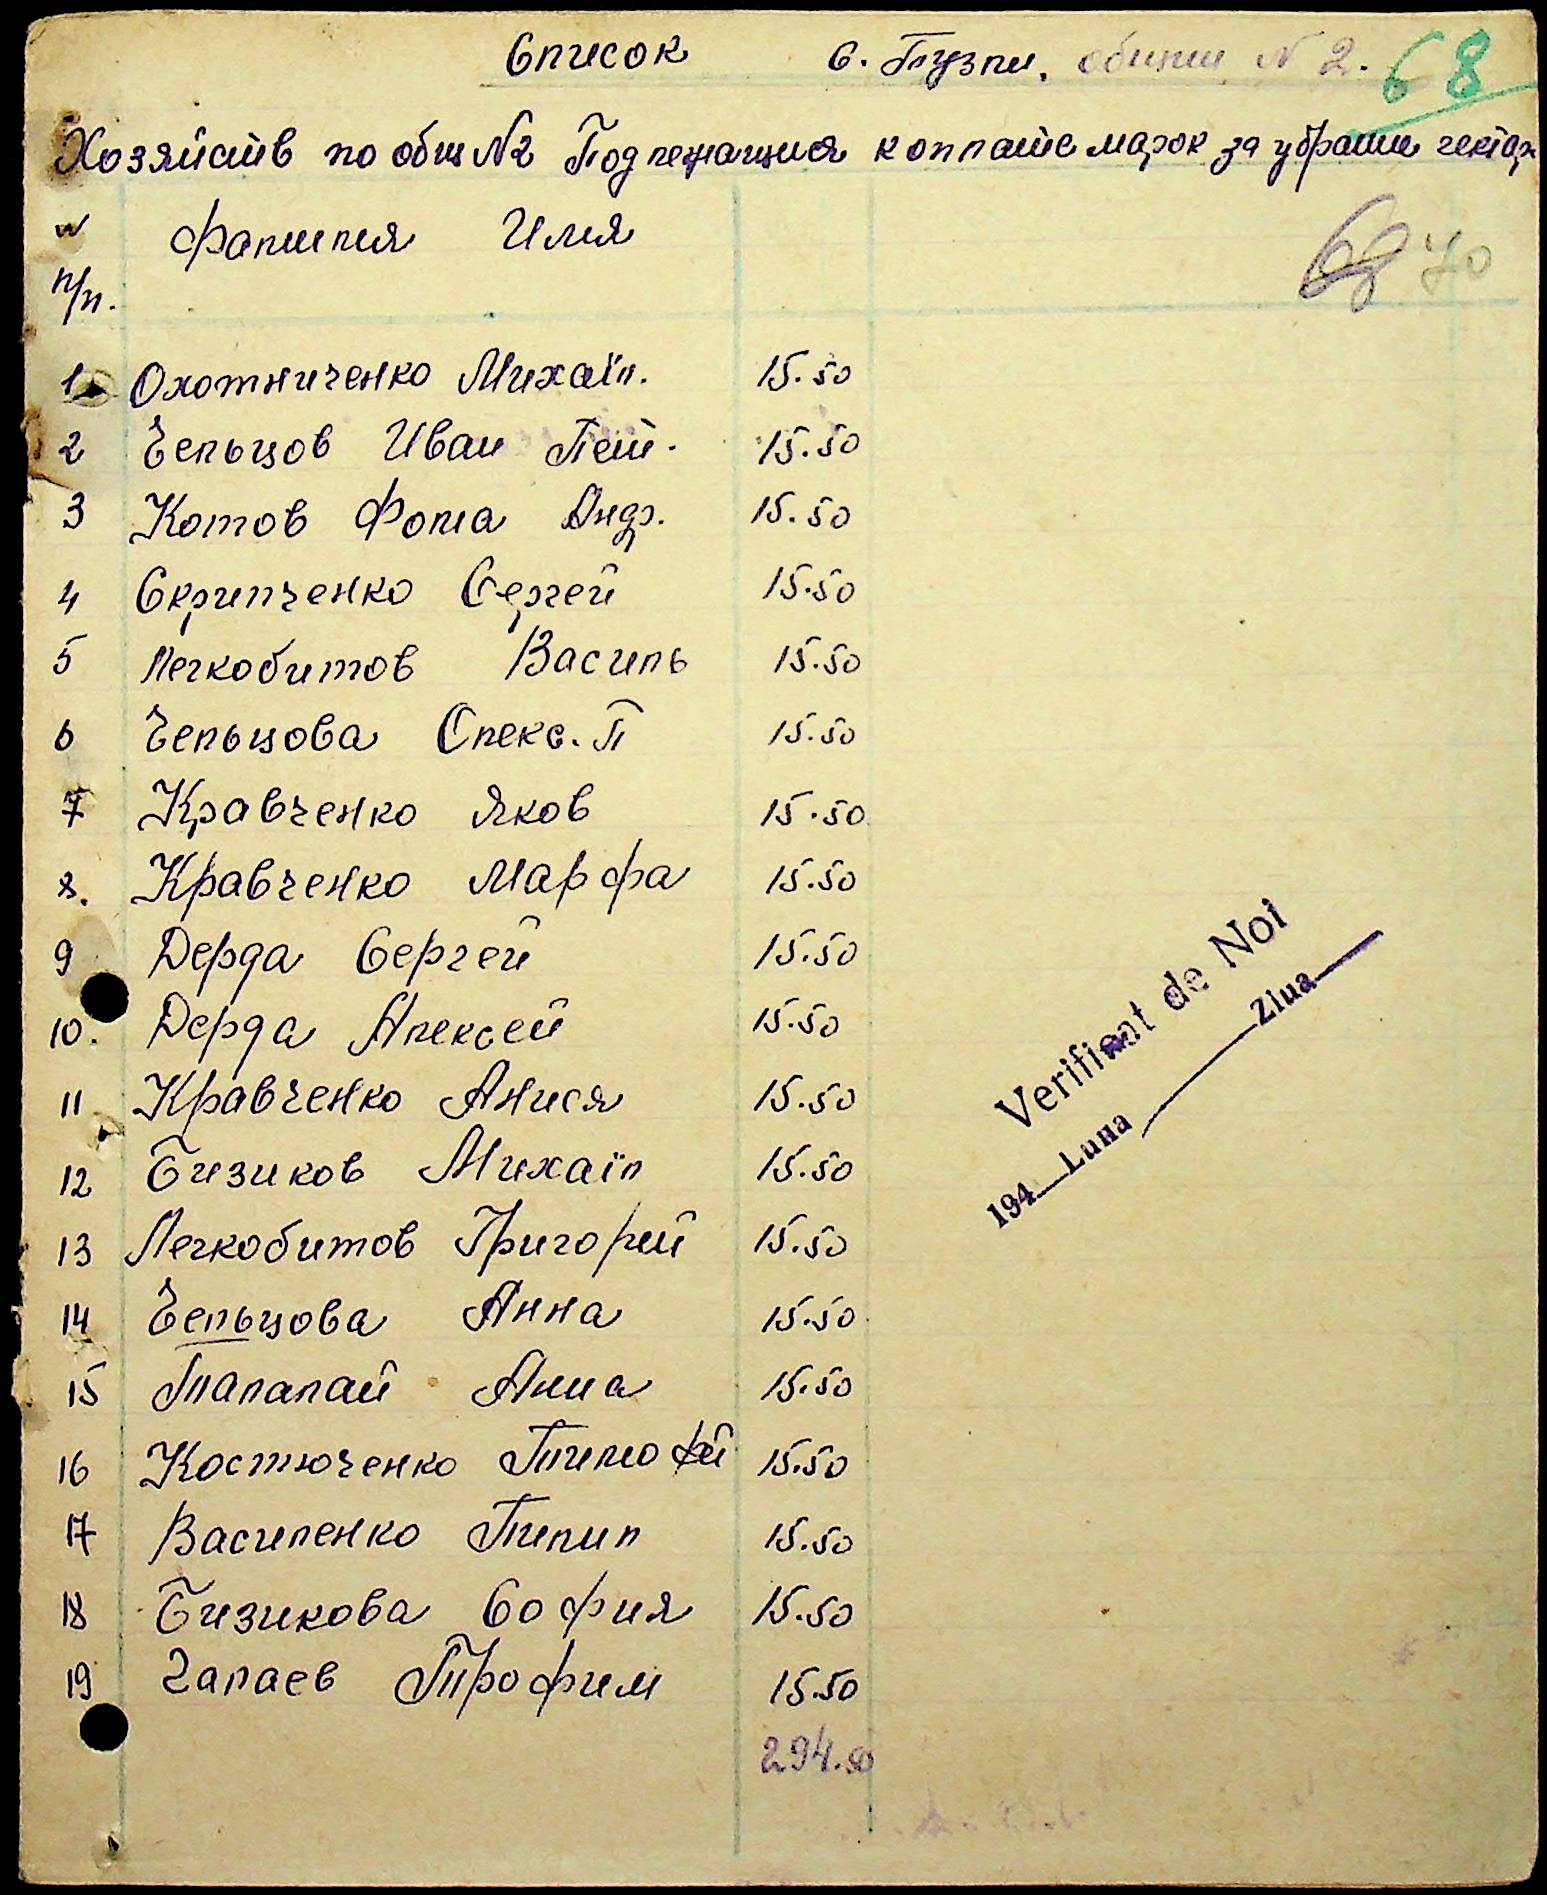 Список с. Глузли. общини N 2. 68
Хозяйств по общ N2 Подлежащия к оплате марок за убрание гектар
N Фамилия Имя
68 70
п/п.
1 Охотниченко Михаїл. 15.50
2 Чельцов Иван Пет. 15.50
3 Котов Фома Андр. 15.50
4 Скрипченко Сергей 15.50
5 Легкобитов Василь 15.50
6 Чельцова Олекс. П 15.50
7 Кравченко Яков 15.50
8. Кравченко Марфа 15.50
9 Дерда Сергей 15.50
10. Дерда Алексей 15.50
11 Кравченко Анися 15.50
12 Бизиков Михаїл 15.50
13 Легкобитов Григорий 15.50
14 Чельцова Анна 15.50
15 Талалай Анна 15.50
16 Костюченко Тимофей 15.50
17 Василенко Пилип 15.50
18 Бизикова София 15.50
19 Чалаев Трофим 15.50
294.50
Verificat de Noi
194 Luna Ziua